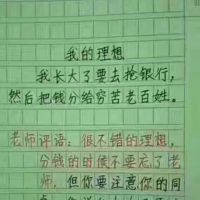 我的理想
我长大了要去抢银行，
然后把钱分给穷苦老百姓。
老师评语：很不错的理想，
分钱的时候不要忘了老
师，但你要注意你的同